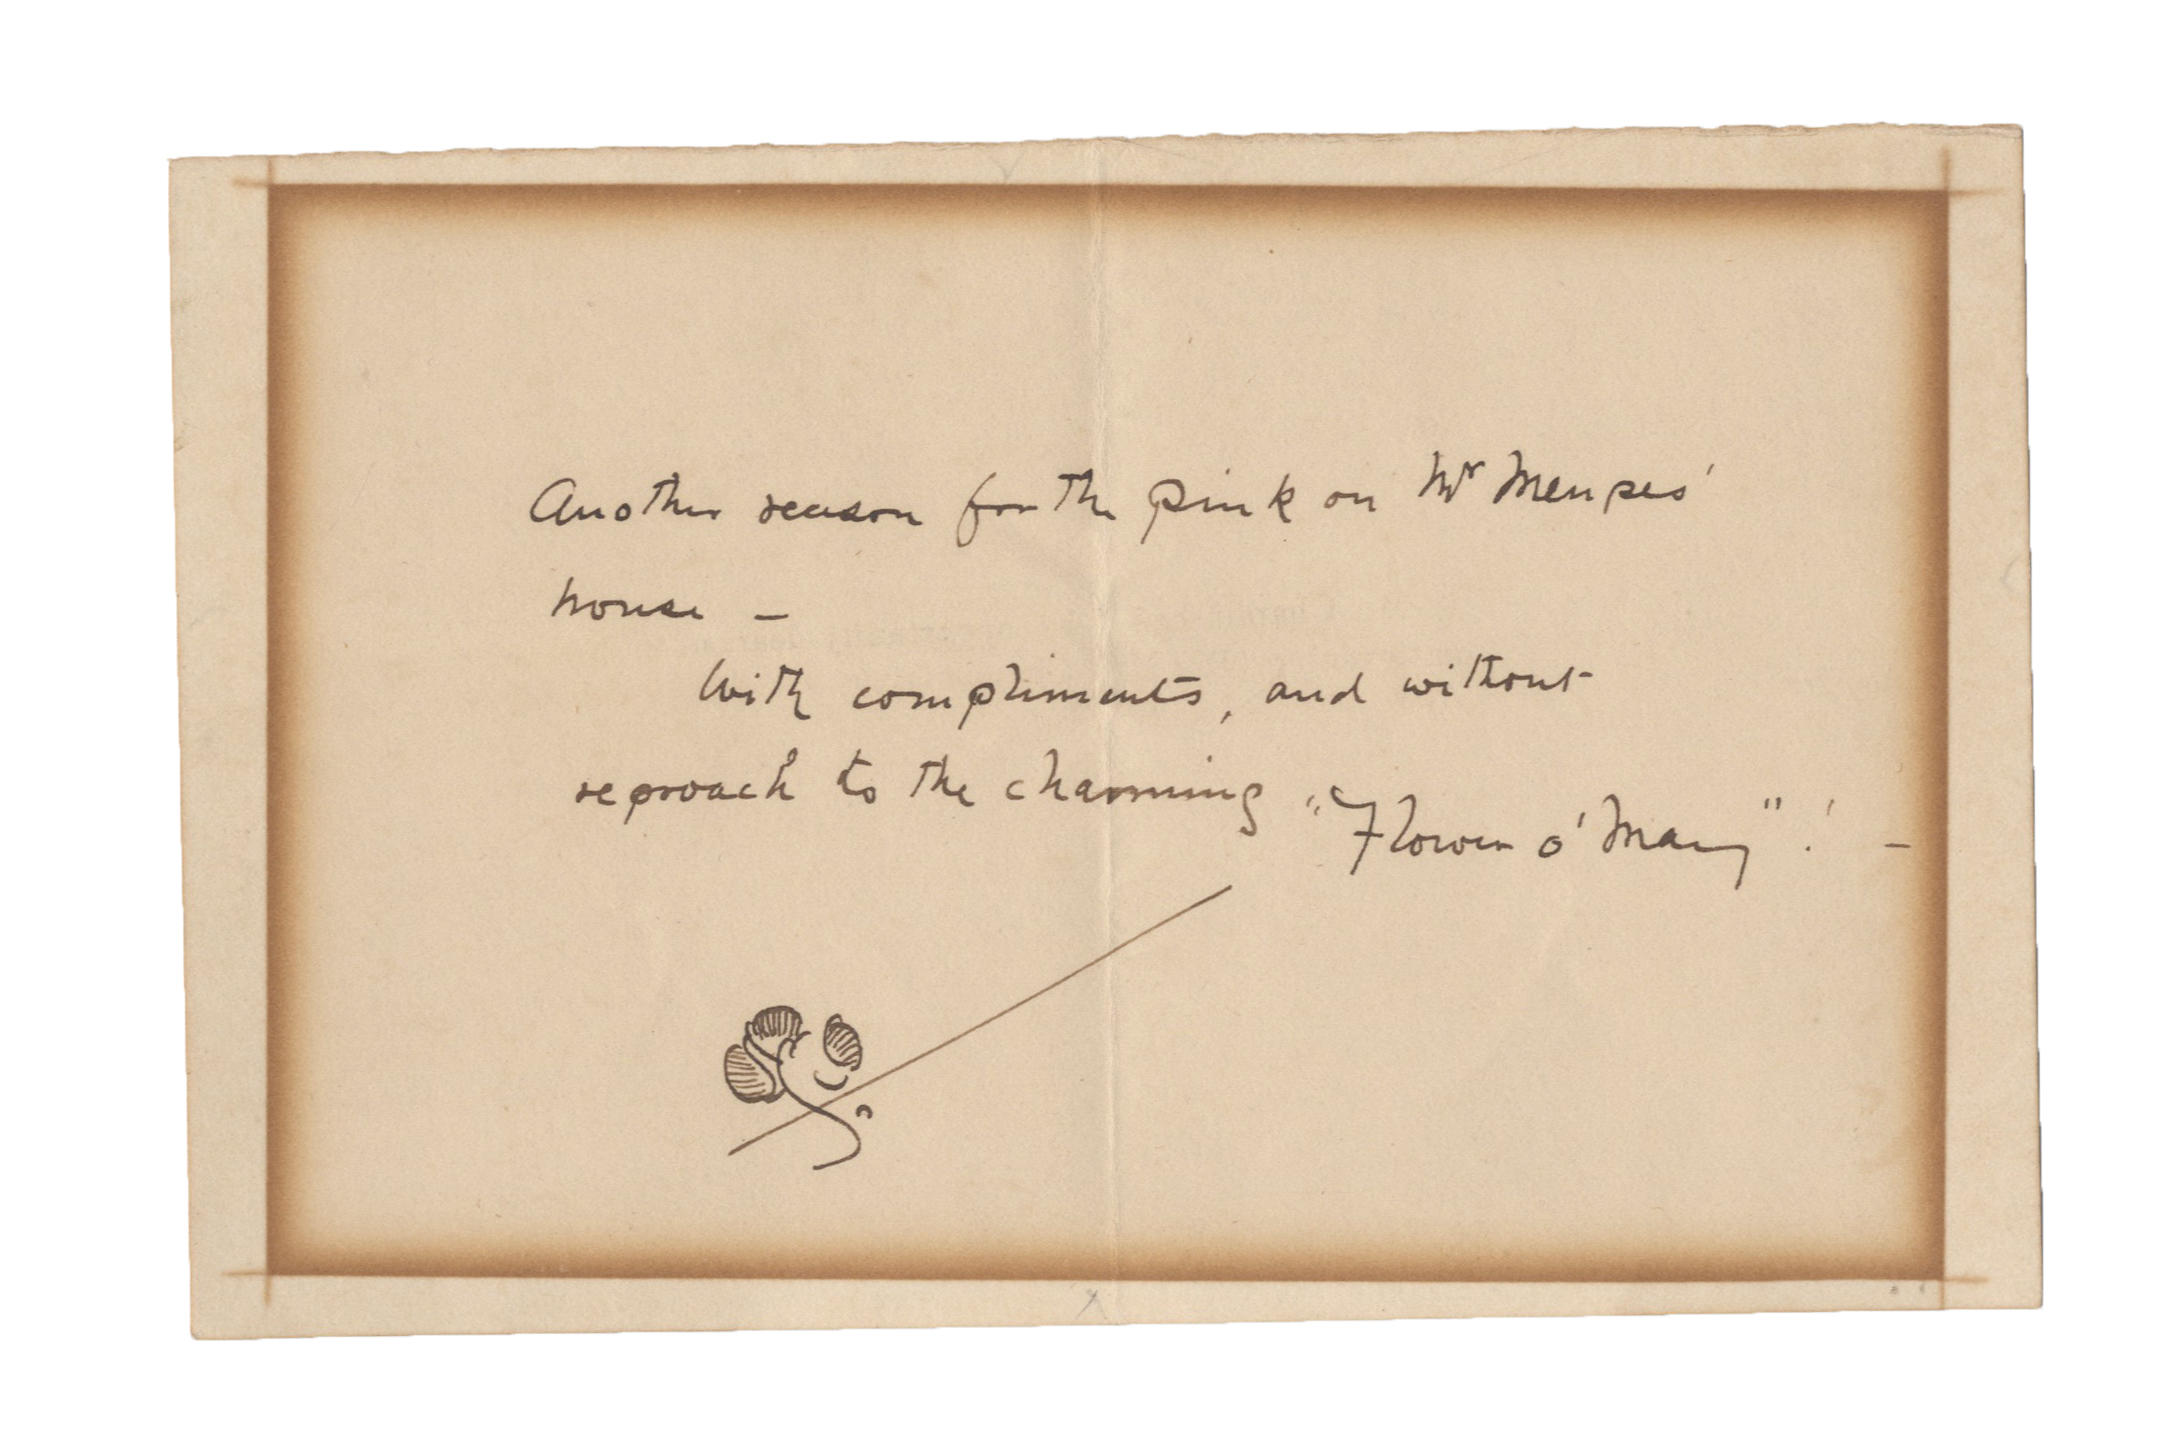 Another reason for the pink on Mr Menpes'
house –
With compliments, and without
reproach to the charming "Flower o' May"! –